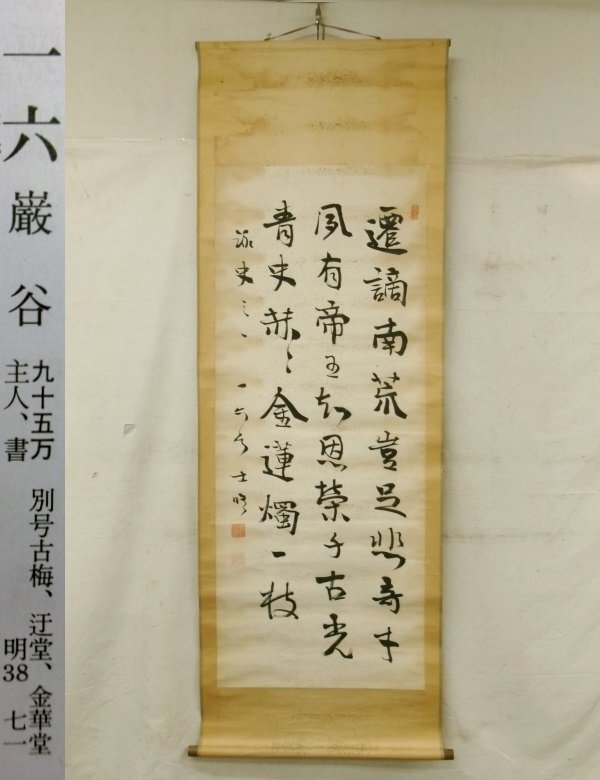 一六
巌谷
九十五万
主人、書
別号古梅、迂堂、金華堂
明38 七一
遷謫南荒豈足悲奇才
夙有帝王知恩榮千古光
青史赫〻金蓮燭一枝
詠史之一 一六居士脩